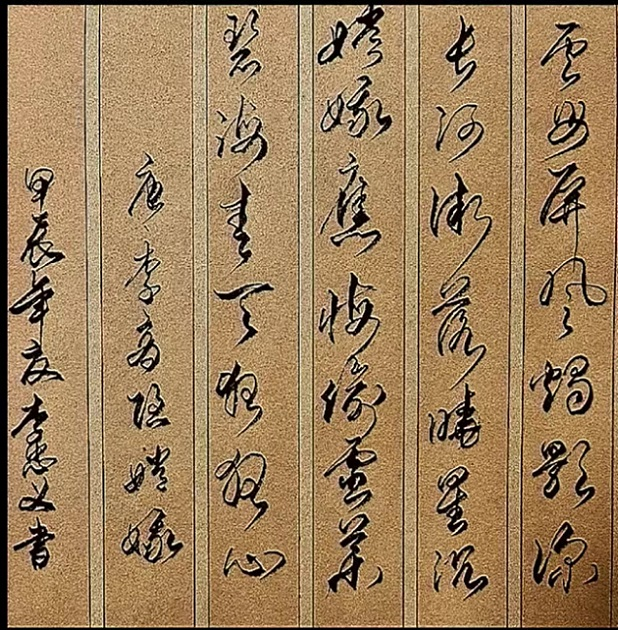 雲母屏風燭影深
長河漸落曉星沉
嫦娥應悔偷靈藥
碧海青天夜夜心
唐李商隱嫦娥
甲辰年夏李書